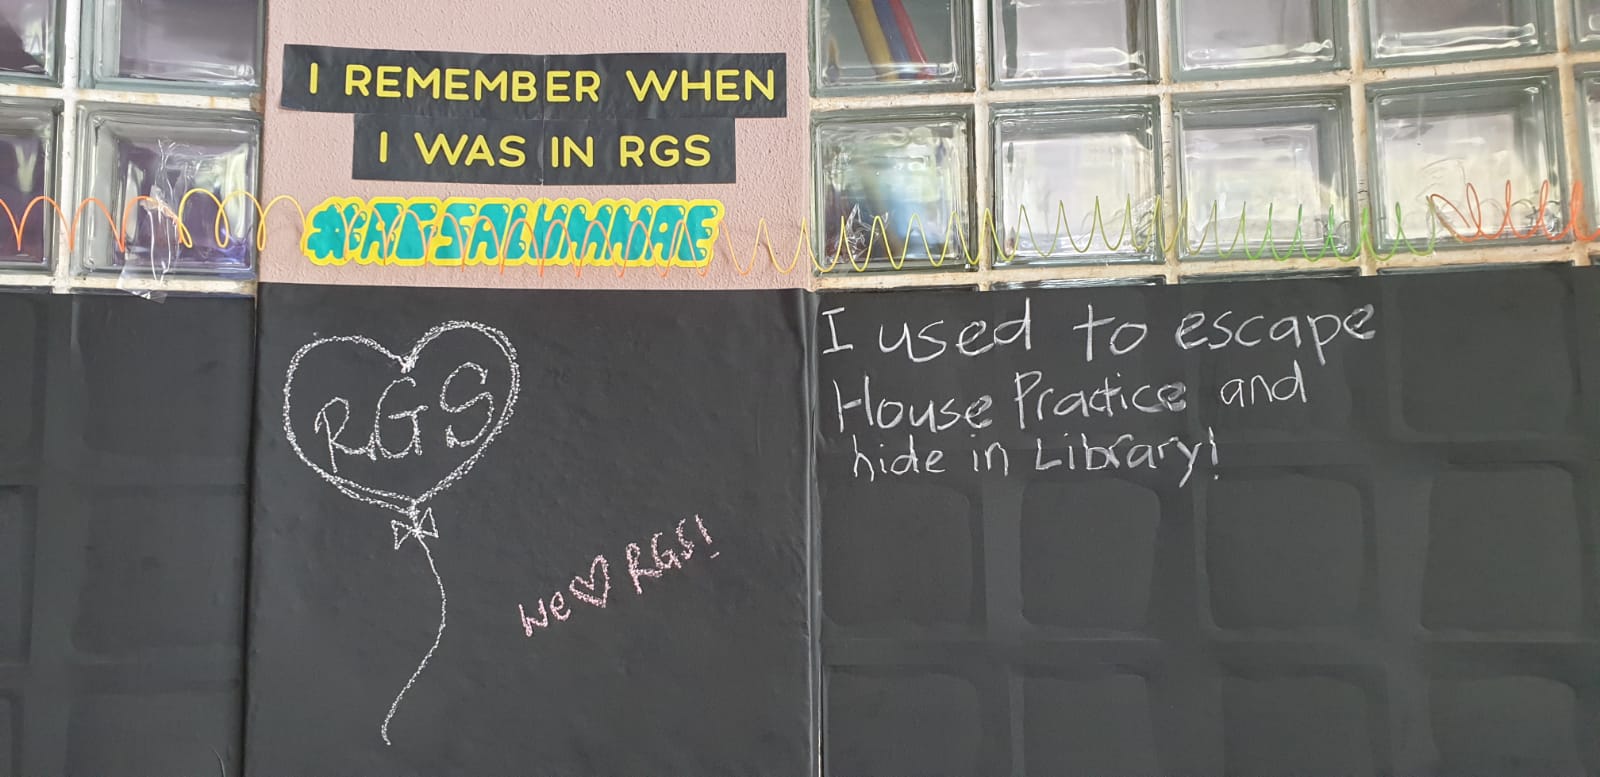 I REMEMBER WHEN
I WAS IN RGS
RGS
We ♡ RGS!
I used to escape
House Practice and
hide in Library!